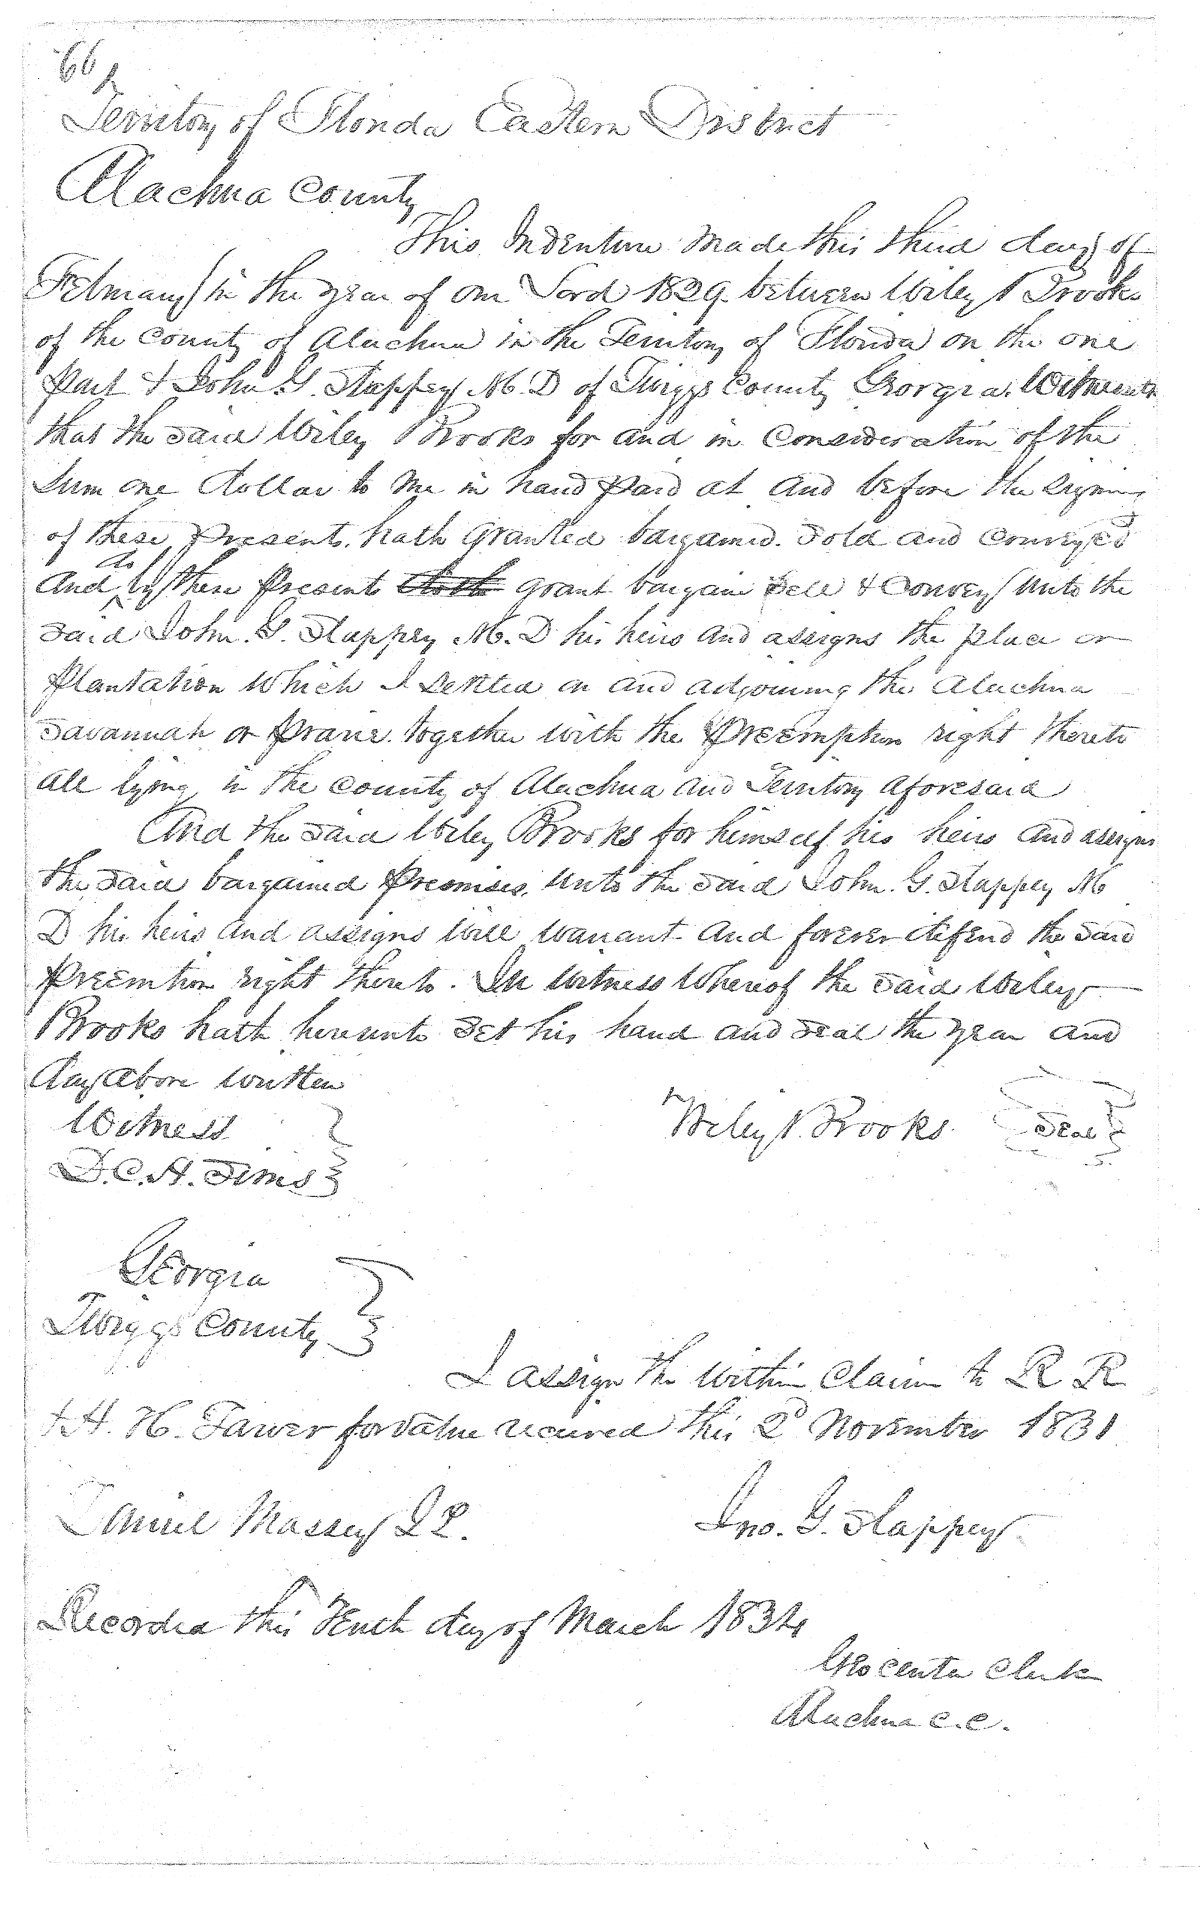 66
Territory of Florida Eastern District
Alachua County
This Indenture made this third day of
February in the year of our Lord 1829 between Wiley Brooks
of the county of Alachua in the Territory of Florida on the one
Part & John G. Slappey M. D of Twiggs County Georgia. Witnesseth
that the said Wiley Brooks for and in consideration of the
Sum one dollar to me in hand paid at and before the signing
of these Presents, hath granted bargained. sold and conveyed
do
and by these Presents doth grant bargain sell & Convey unto the
said John. G. Slappey M. D his heirs and assigns the place or
Plantation which I settled on and adjoining the Alachua
Savannah or Prarie together with the Preemption right thereto
all lying in the county of Alachua and Territory aforesaid
And the said Wiley Brooks for himself his heirs and assigns
the said bargained Premises, unto the said John. G. Slappey M
D his heirs and assigns will warrant and forever defend the said
Preemtion right thereto. In witness whereof the said Wiley
Brooks hath hereunto set his hand and seal the year and
day above written
Witness
Wiley Brooks Seal
D. C. H. Sims
Georgia
Twiggs County
I assign the within claim to R R
& H. H. for value received this 2d November 1831
Daniel Massey J P.
Jno. G. Slappey
Recorded this Tenth day of March 1834
Geo Center Clerk
Alachua C. C.